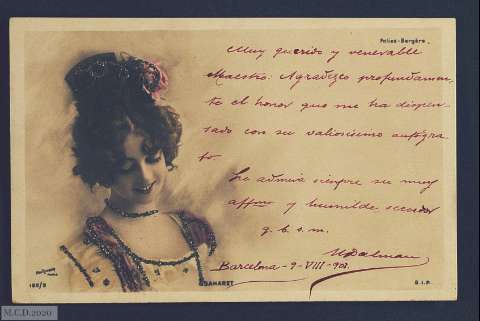 Folies-Bergère
Muy querido y venerable
Maestro: Agradezco profundamen-
te el honor que me ha dispen-
sado con su valiosísimo autógra-
fo.
Le admira siempre su muy
affmo y humilde servidor
q. b. s. m.
Barcelona - 9 - VIII - 901.
188/8
SAHARET
S.I.P.
M.C.D.2020